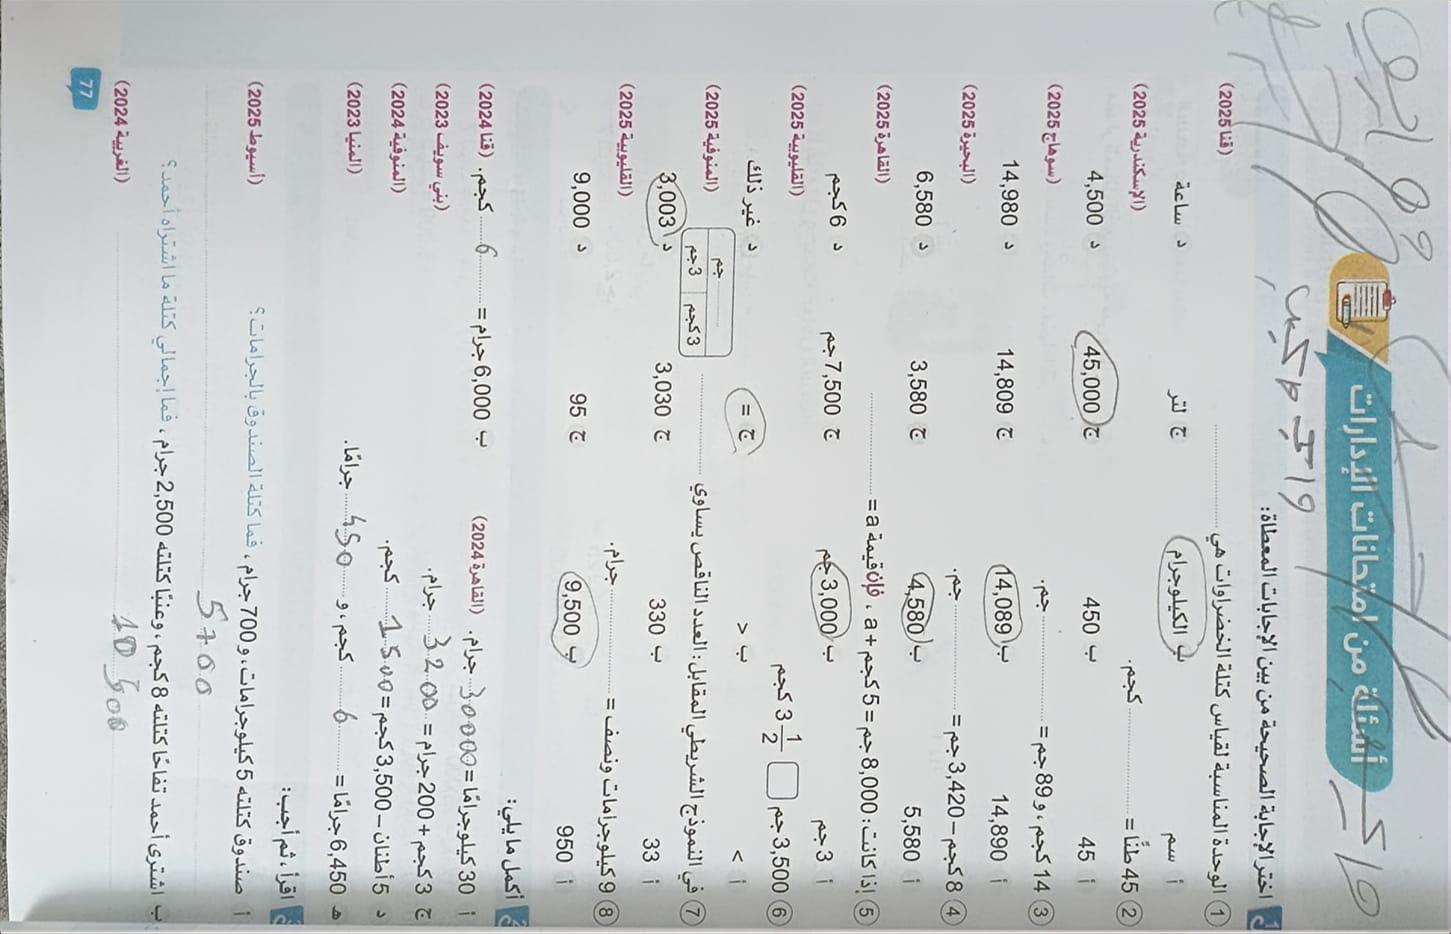 أسئلة من امتحانات الإدارات
1 اختر الإجابة الصحيحة من بين الإجابات المعطاة:
1 الوحدة المناسبة لقياس كتلة الخضراوات هي .......... (قنا 2025)
أ سم ب الكيلوجرام ج لتر د ساعة
2 45 طنًّا = .......... كجم. (الإسكندرية 2025)
أ 45 ب 450 ج 45,000 د 4,500
3 14 كجم، و 89 جم = .......... جم. (سوهاج 2025)
أ 14,890 ب 14,089 ج 14,809 د 14,980
4 8 كجم – 3,420 جم = .......... جم. (البحيرة 2025)
أ 5,580 ب 4,580 ج 3,580 د 6,580
5 إذا كانت: 8,000 جم = 5 كجم + a ، فإن قيمة a = .......... (القاهرة 2025)
أ 3 جم ب 3,000 جم ج 7,500 جم د 6 كجم
6 3,500 جم □ 3 1/2 كجم (القليوبية 2025)
أ < ب > ج = د غير ذلك
7 في النموذج الشريطي المقابل: العدد الناقص يساوي .......... (المنوفية 2025)
.......... جم
3 كجم 3 جم
أ 33 ب 330 ج 3,030 د 3,003
8 9 كيلوجرامات ونصف = .......... جرام. (القليوبية 2025)
أ 950 ب 9,500 ج 95 د 9,000
2 أكمل ما يلي:
أ 30 كيلوجرامًا = 30000 جرام. (القاهرة 2024) ب 6,000 جرام = 6 كجم. (قنا 2024)
ج 3 كجم + 200 جرام = 3200 جرام. (بني سويف 2023)
د 5 أطنان – 3,500 كجم = 1500 كجم. (المنوفية 2024)
هـ 6,450 جرامًا = 6 كجم، و 450 جرامًا. (المنيا 2023)
اقرأ، ثم أجب:
أ صندوق كتلته 5 كيلوجرامات، و 700 جرام، فما كتلة الصندوق بالجرامات؟ (أسيوط 2025)
5700
ب اشترى أحمد تفاحًا كتلته 8 كجم، وعنبًا كتلته 2,500 جرام، فما إجمالي كتلة ما اشتراه أحمد؟
10500 (الغربية 2024)
77